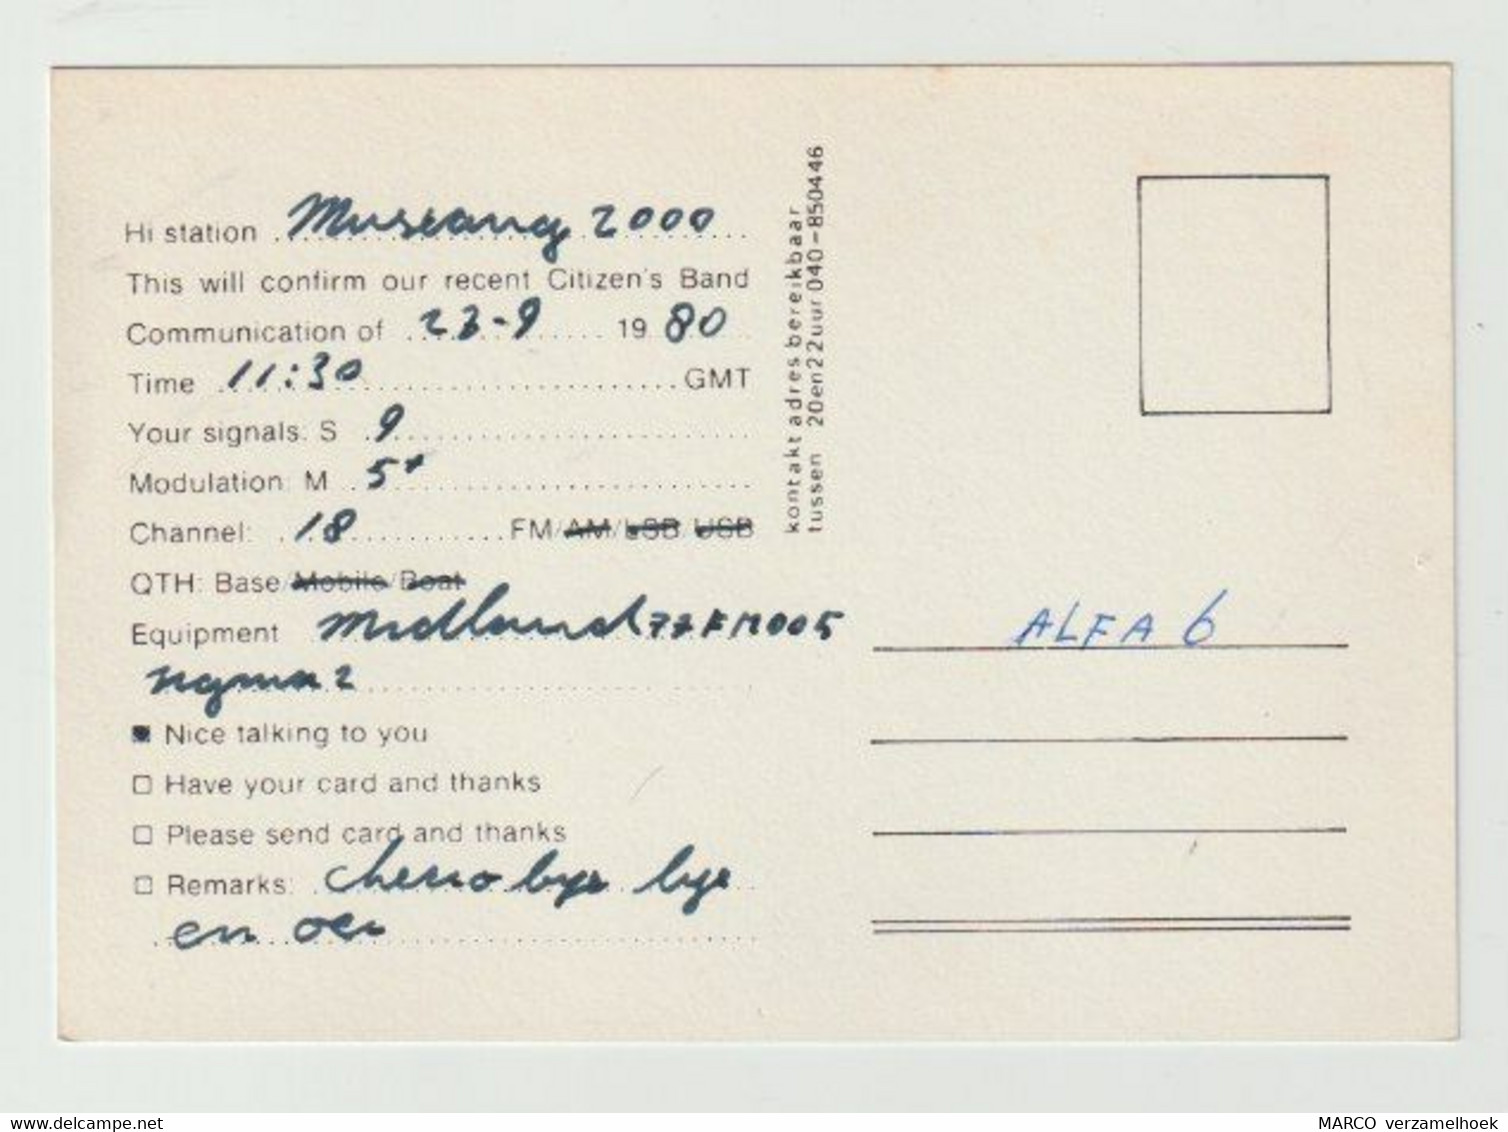 Hi station Mustang 2000
This will confirm our recent Citizen's Band
Communication of 23-9 1980
Time 11:30 GMT
Your signals: S 9
Modulation: M 5+
Channel: 18 FM/AM/LSB/USB
QTH: Base/Mobile/Boat
Equipment midland 77FM005
sigma 2
Nice talking to you
Have your card and thanks
Please send card and thanks
Remarks: bye bye
en
kontakt adres bereikbaar
tussen 20en22uur 040-850446
ALFA 6
www.delcampe.net
MARCO verzamelhoek